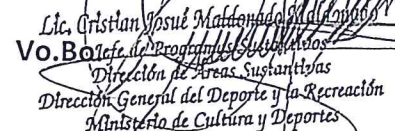 Lic. Cristian Josué Maldonado Maldonado
Vo.Bo. Jefe de Programas Sustantivos
Dirección de Áreas Sustantivas
Dirección General del Deporte y la Recreación
Ministerio de Cultura y Deportes